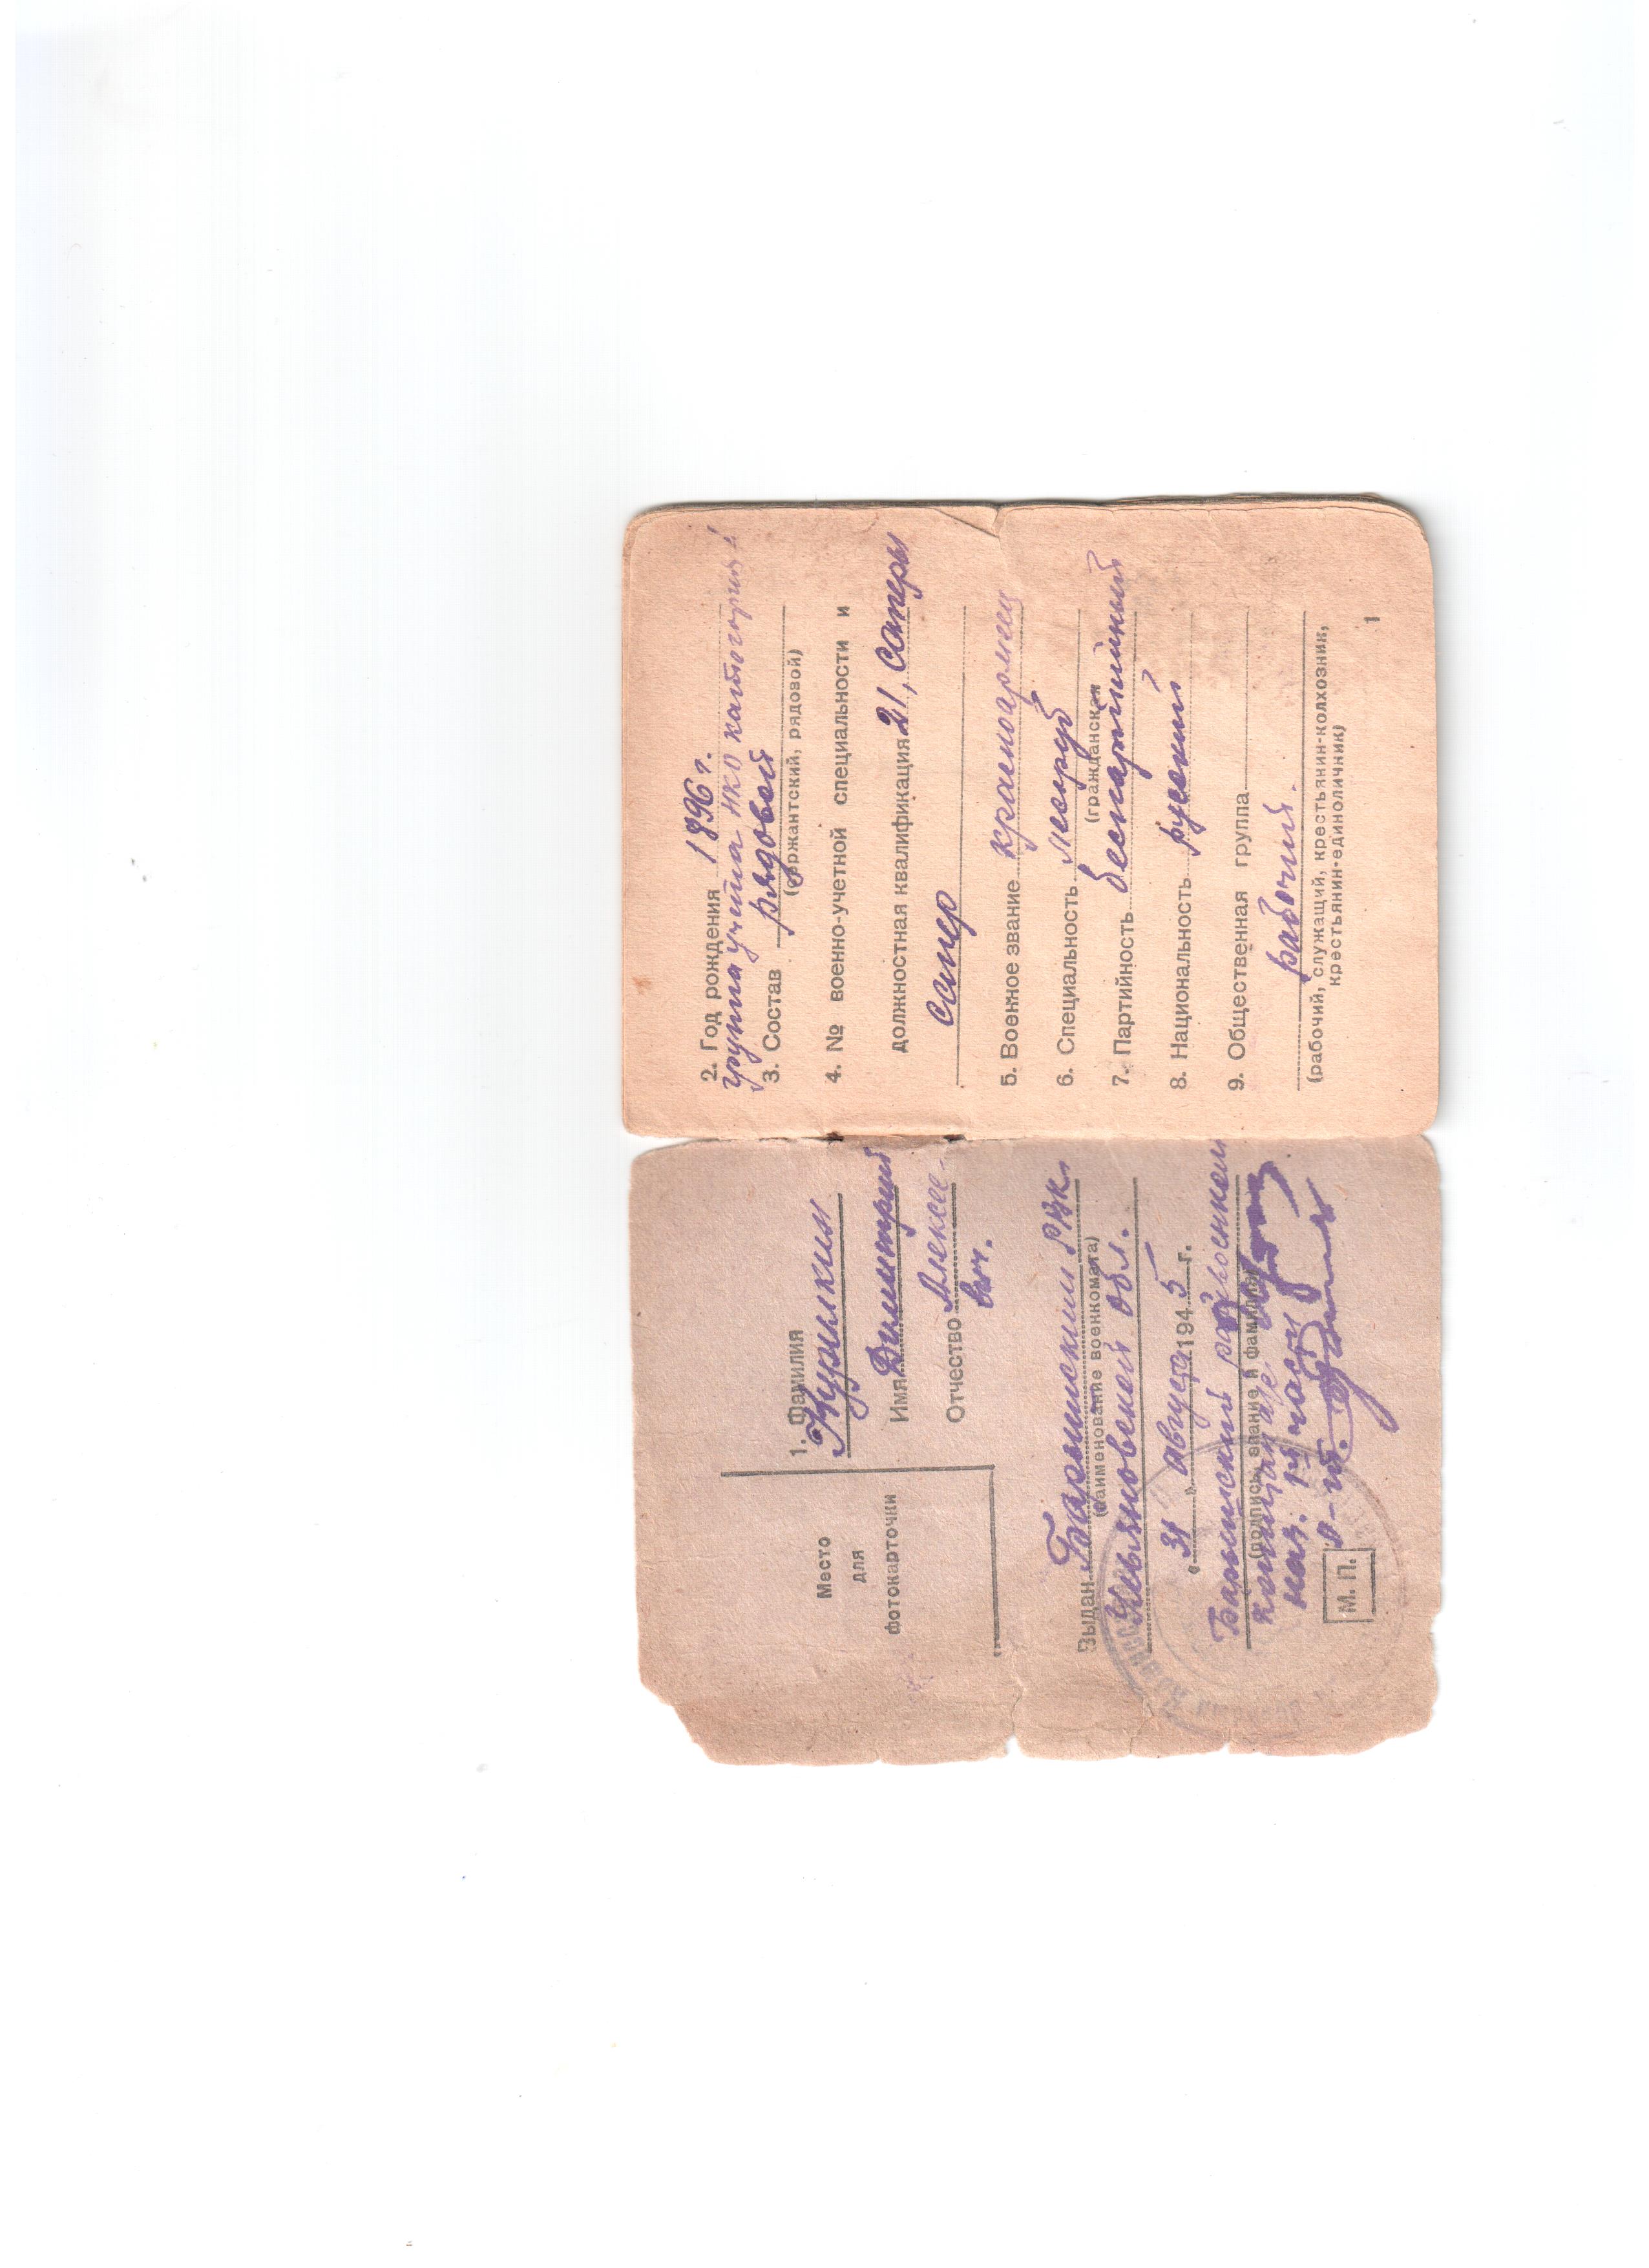 Место
для
фотокарточки
1. Фамилия
Курилкин
Имя Дмитрий
Отчество Алексее-
вич.
Выдан Барышский РВК
(наименование военкомата)
Ульяновской обл.
„31“ августа 1945 г.
Барышский райвоенком
(подпись, звание и фамилия)
нач. части
М. П.
2. Год рождения 1896 г.
группа учета НКО категория 1
3. Состав рядовой
(сержантский, рядовой)
4. № военно-учетной специальности и
должностная квалификация 21, саперы
сапер
5. Военное звание красноармеец
6. Специальность лесоруб
(гражданская)
7. Партийность беспартийный
8. Национальность русский
9. Общественная группа
рабочий.
(рабочий, служащий, крестьянин-колхозник,
крестьянин-единоличник)
1